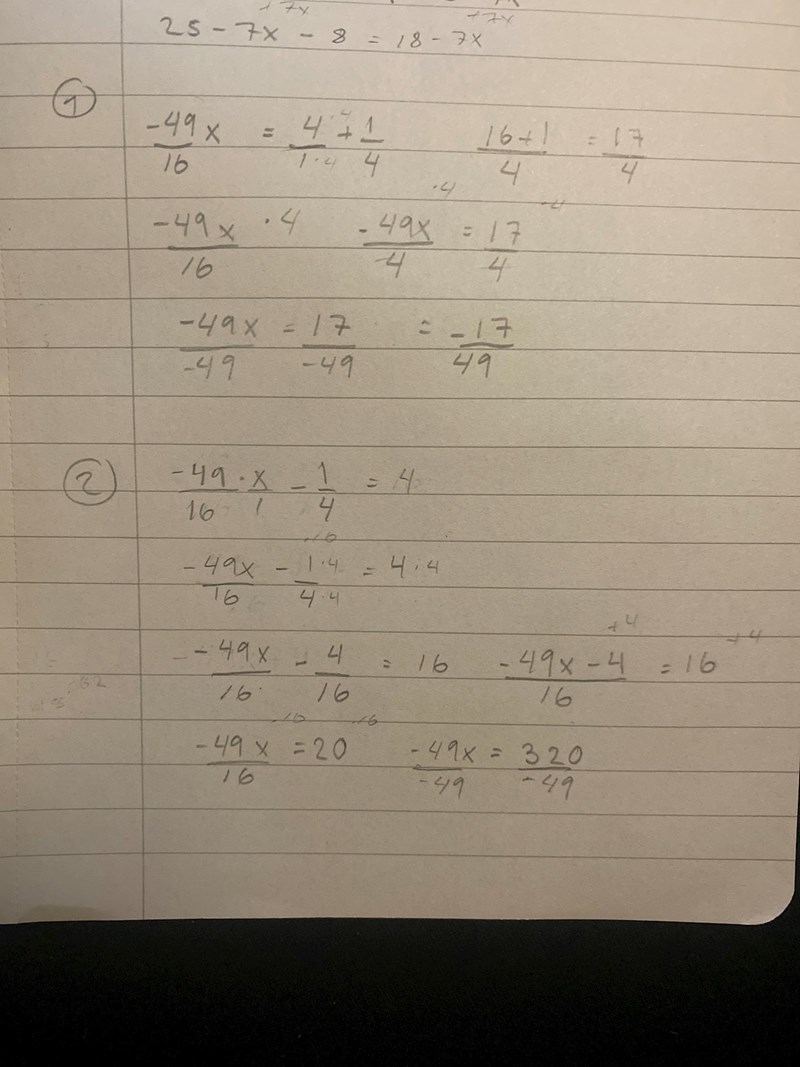 +7x +7x
25 - 7x - 8 = 18 - 7x
① -49x/16 = 4·4/1·4 + 1/4 16+1/4 = 17/4
·4 ·4
-49x/16 · 4 -49x/4 = 17/4
-49x/-49 = 17/-49 = -17/49
② -49/16 · x/1 - 1/4 = 4
-49x/16 - 1·4/4·4 = 4·4
+4 +4
-49x/16 - 4/16 = 16 -49x-4/16 = 16
·16 ·16
-49x/16 = 20 -49x/-49 = 320/-49